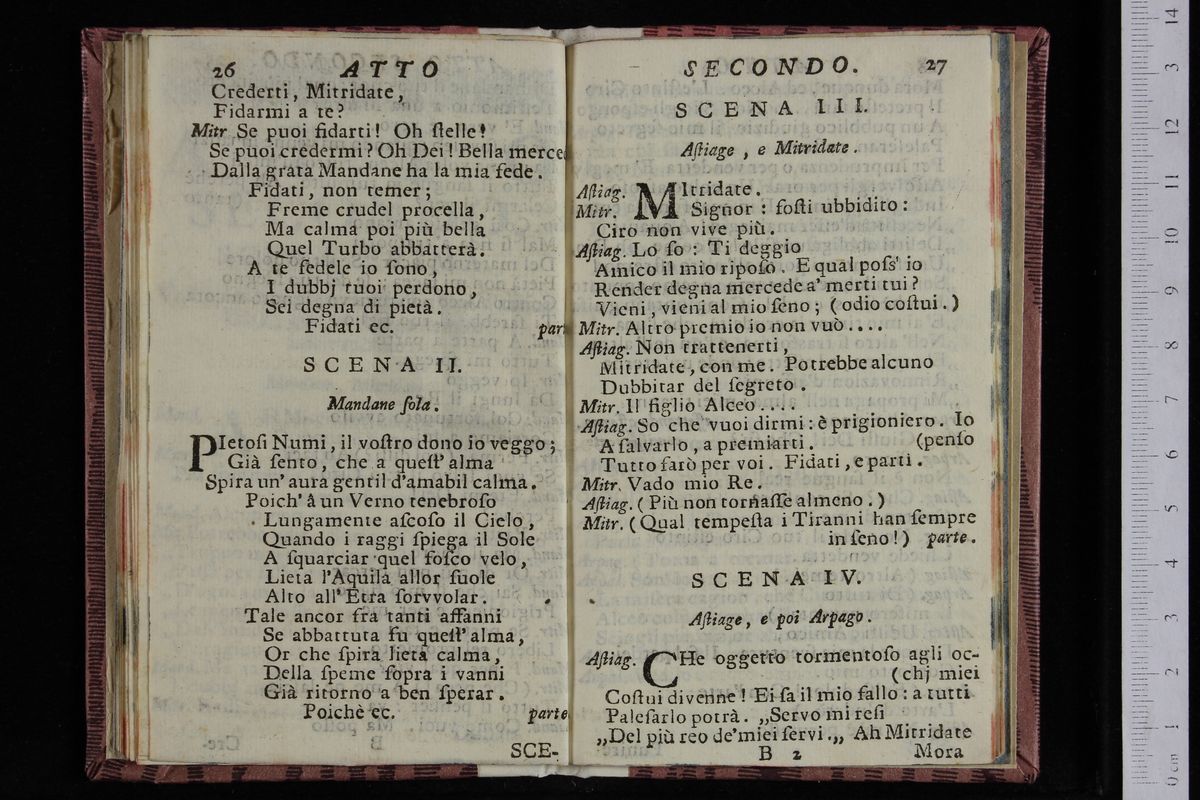 26 ATTO
Crederti, Mitridate,
Fidarmi a te?
Mitr Se puoi fidarti! Oh ſtelle!
Se puoi credermi? Oh Dei! Bella merce
Dalla grata Mandane ha la mia fede.
Fidati, non temer;
Freme crudel procella,
Ma calma poi più bella
Quel Turbo abbatterà.
A te fedele io ſono,
I dubbj tuoi perdono,
Sei degna di pietà.
Fidati ec. part
SCENA II.
Mandane ſola.
PIetoſi Numi, il voſtro dono io veggo;
Già ſento, che a queſt' alma
Spira un' aura gentil d'amabil calma.
Poich' â un Verno tenebroſo
Lungamente aſcoſo il Cielo,
Quando i raggi ſpiega il Sole
A ſquarciar quel foſco velo,
Lieta l'Aquila allor ſuole
Alto all' Etra ſorvvolar.
Tale ancor fra tanti affanni
Se abbattuta fu queſt' alma,
Or che ſpira lieta calma,
Della ſpeme ſopra i vanni
Già ritorno a ben ſperar.
Poichè ec. parte
SCE-
SECONDO. 27
SCENA III.
Aſtiage, e Mitridate.
Aſtiag. MItridate.
Mitr. Signor: foſti ubbidito:
Ciro non vive più.
Aſtiag. Lo ſo: Ti deggio
Amico il mio ripoſo. E qual poſs' io
Render degna mercede a' merti tui?
Vieni, vieni al mio ſeno; (odio coſtui.)
Mitr. Altro premio io non vuò....
Aſtiag. Non trattenerti,
Mitridate, con me. Potrebbe alcuno
Dubbitar del ſegreto.
Mitr. Il figlio Alceo....
Aſtiag. So che vuoi dirmi: è prigioniero. Io
A ſalvarlo, a premiarti. (penſo
Tutto farò per voi. Fidati, e parti.
Mitr. Vado mio Re.
Aſtiag. (Più non tornaſſe almeno.)
Mitr. (Qual tempeſta i Tiranni han ſempre
in ſeno!) parte.
SCENA IV.
Aſtiage, e poi Arpago.
Aſtiag. CHe oggetto tormentoſo agli oc-
(chj miei
Coſtui divenne! Ei ſa il mio fallo: a tutti
Paleſarlo potrà. „Servo mi reſi
„Del più reo de' miei ſervi.„ Ah Mitridate
B 2 Mora